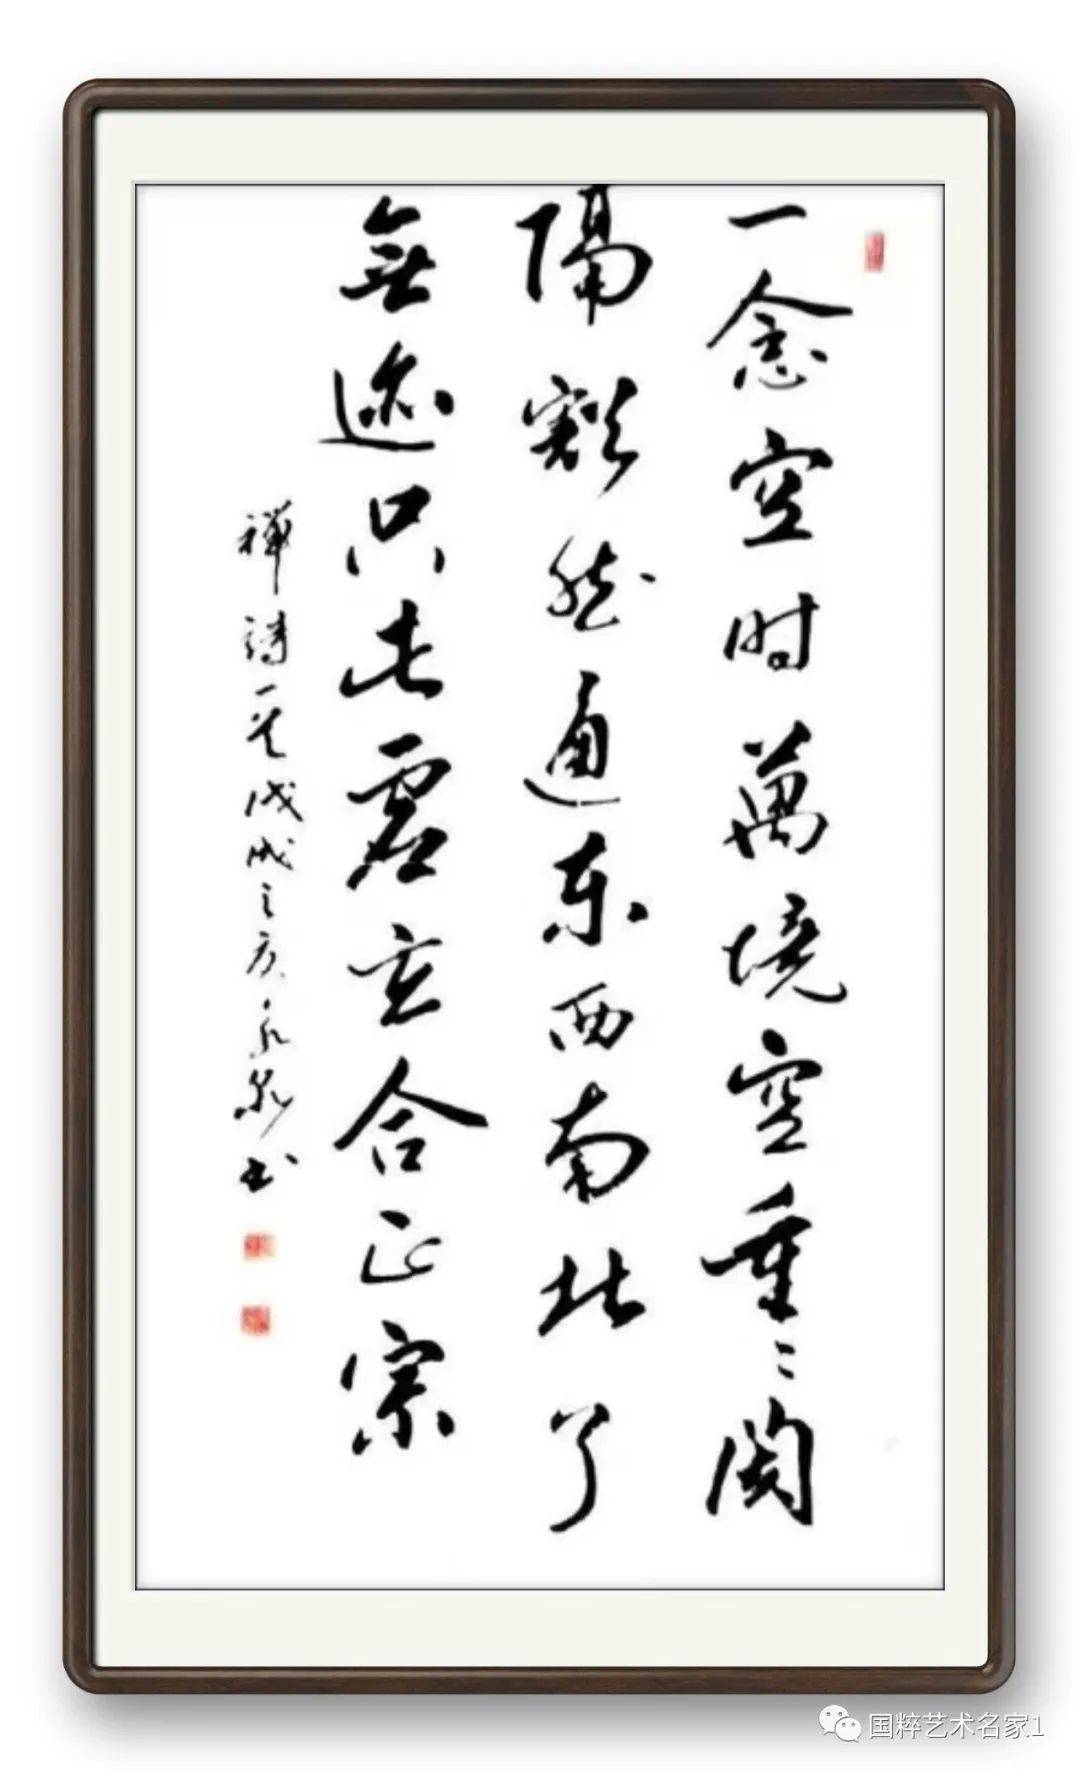 一念空时萬境空重重関
隔豁然通东西南北了
無迹只此虚玄合正宗
禅詩一首戊戌之夏永泉书
国粹艺术名家1